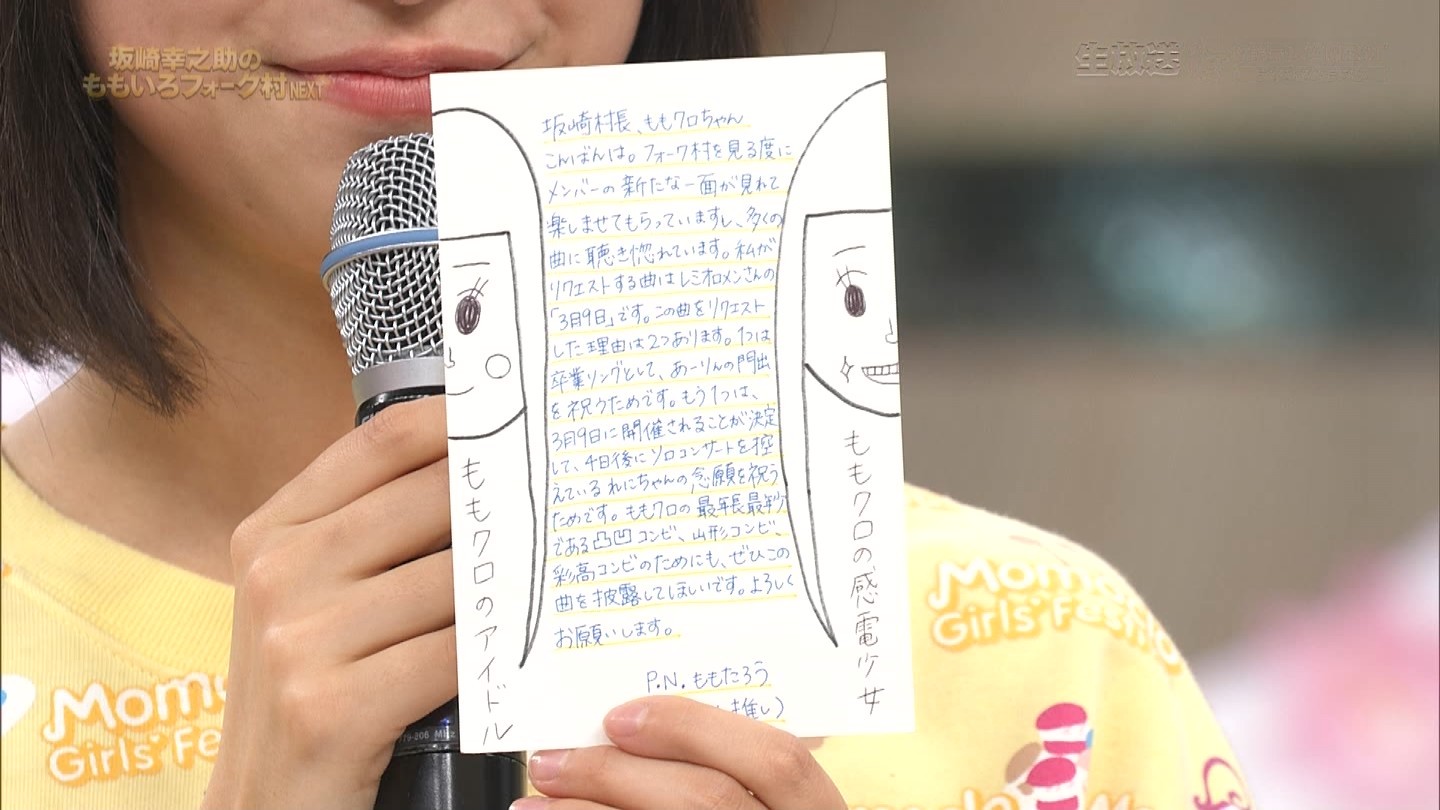 坂崎幸之助の
ももいろフォーク村NEXT
生放送
坂崎村長、ももクロちゃん
こんばんは。フォーク村を見る度に
メンバーの新たな一面が見れて
楽しませてもらっていますし、多くの
曲に聴き惚れています。私が
リクエストする曲はレミオロメンさんの
「3月9日」です。この曲をリクエスト
した理由は2つあります。1つは
卒業ソングとして、あーりんの門出
を祝うためです。もう1つは、
3月9日に開催されることが決定
して、4日後にソロコンサートを控
えているれにちゃんの念願を祝う
ためです。ももクロの最年長最年少
である凸凹コンビ、山形コンビ、
彩高コンビのためにも、ぜひこの
曲を披露してほしいです。よろしく
お願いします。
P.N. ももたろう
推し)
ももクロのアイドル
ももクロの感電少女
Momo
Girls' Fes
Momo
Girls' Festi